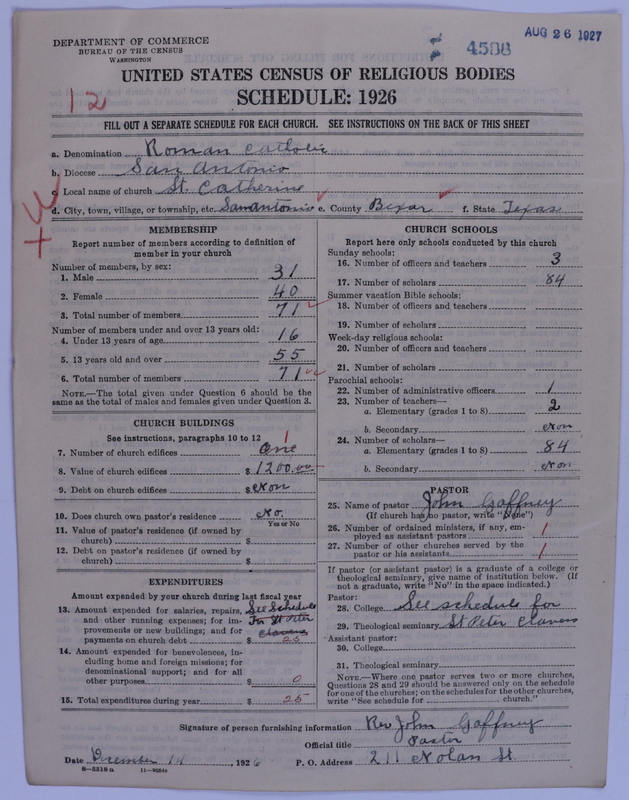 AUG 26 1927
4538
DEPARTMENT OF COMMERCE
BUREAU OF THE CENSUS
WASHINGTON
UNITED STATES CENSUS OF RELIGIOUS BODIES
SCHEDULE: 1926
12
FILL OUT A SEPARATE SCHEDULE FOR EACH CHURCH. SEE INSTRUCTIONS ON THE BACK OF THIS SHEET
a. Denomination Roman Catholic
b. Diocese San Antonio
c. Local name of church St. Catherine
d. City, town, village, or township, etc. San Antonio e. County Bexar f. State Texas
MEMBERSHIP
Report number of members according to definition of
member in your church
Number of members, by sex:
1. Male 31
2. Female 40
3. Total number of members 71
Number of members under and over 13 years old:
4. Under 13 years of age 16
5. 13 years old and over 55
6. Total number of members 71
NOTE.—The total given under Question 6 should be the
same as the total of males and females given under Question 3.
CHURCH BUILDINGS
See instructions, paragraphs 10 to 12
1
7. Number of church edifices One
8. Value of church edifices $1200.00
9. Debt on church edifices $ Non
10. Does church own pastor's residence No.
Yes or No
11. Value of pastor's residence (if owned by
church) $
12. Debt on pastor's residence (if owned by
church) $
EXPENDITURES
Amount expended by your church during last fiscal year
13. Amount expended for salaries, repairs, See Schedule
and other running expenses; for im- For St Peter
provements or new buildings; and for Clavers
payments on church debt $ 25
14. Amount expended for benevolences, in-
cluding home and foreign missions; for
denominational support; and for all
other purposes $ 0
15. Total expenditures during year $ 25
CHURCH SCHOOLS
Report here only schools conducted by this church
Sunday schools:
16. Number of officers and teachers 3
17. Number of scholars 84
Summer vacation Bible schools:
18. Number of officers and teachers
19. Number of scholars
Week-day religious schools:
20. Number of officers and teachers
21. Number of scholars
Parochial schools:
22. Number of administrative officers 1
23. Number of teachers—
a. Elementary (grades 1 to 8) 2
b. Secondary Non
24. Number of scholars—
a. Elementary (grades 1 to 8) 84
b. Secondary Non
PASTOR
25. Name of pastor John Gaffney
(If church has no pastor, write "None")
26. Number of ordained ministers, if any, em-
ployed as assistant pastors 1
27. Number of other churches served by the
pastor or his assistants 1
If pastor (or assistant pastor) is a graduate of a college or
theological seminary, give name of institution below. (If
not a graduate, write "No" in the space indicated.)
Pastor:
28. College See schedule for
29. Theological seminary St Peter Clavers
Assistant pastor:
30. College
31. Theological seminary
NOTE.—Where one pastor serves two or more churches,
Questions 28 and 29 should be answered only on the schedule
for one of the churches; on the schedules for the other churches,
write "See schedule for church."
Signature of person furnishing information Rev John Gaffney
Official title Pastor
Date December 14, 1926 P. O. Address 211 Nolan St.
8-5318 a